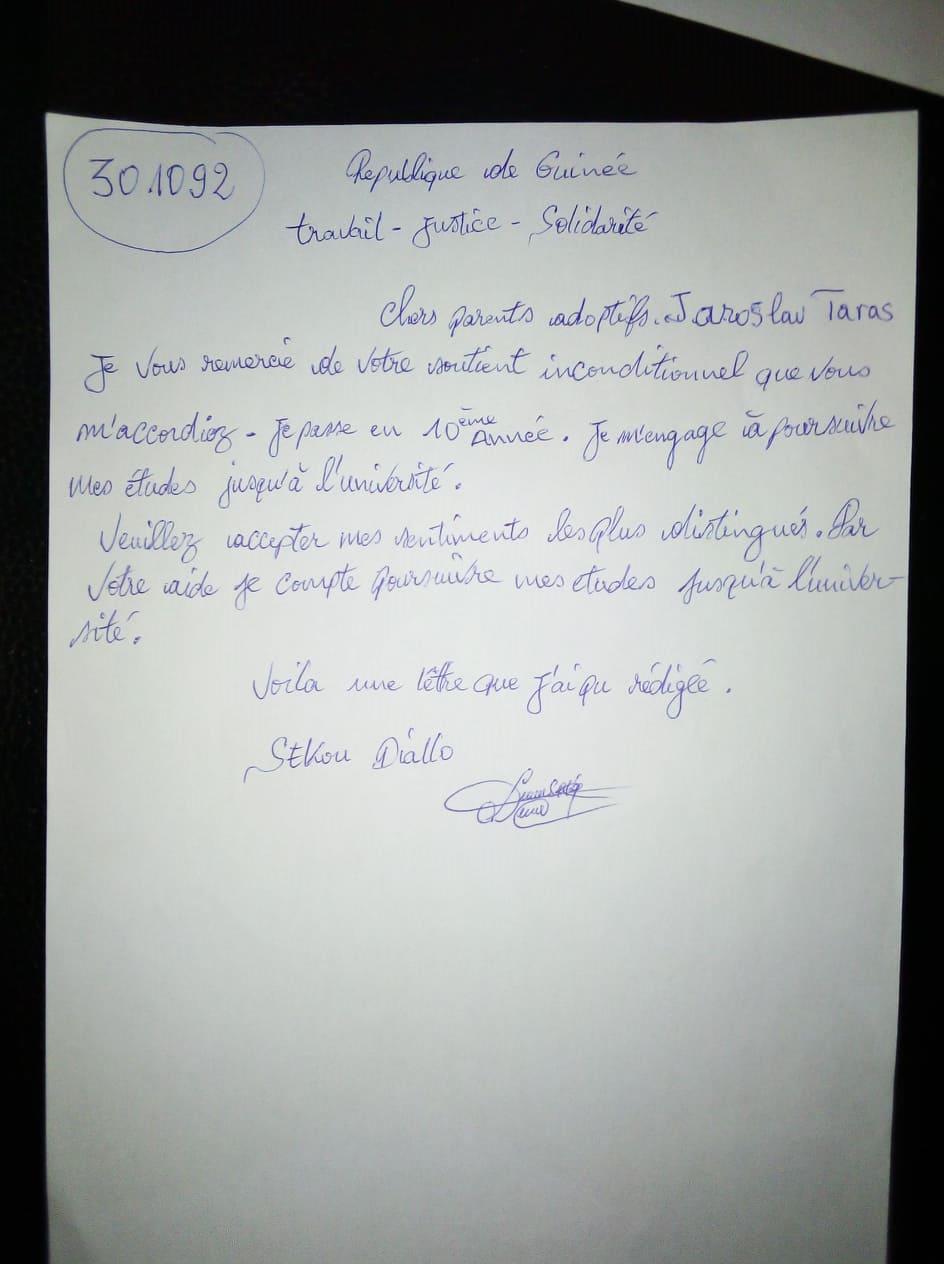 301092
Republique de Guinée
travail - Justice - Solidarité
Chers parents adoptifs. Jaroslav Taras
Je vous remercie de votre soutient inconditionnel que vous
m'accordiez. Je passe en 10ème Année. Je m'engage à poursuivre
mes études jusqu'à l'université.
Veuillez accepter mes sentiments les plus distingués. Par
votre aide je compte poursuivre mes etudes jusqu'à l'univer-
sité.
Voila une lêttre que j'ai pu rédigée.
Sekou Diallo